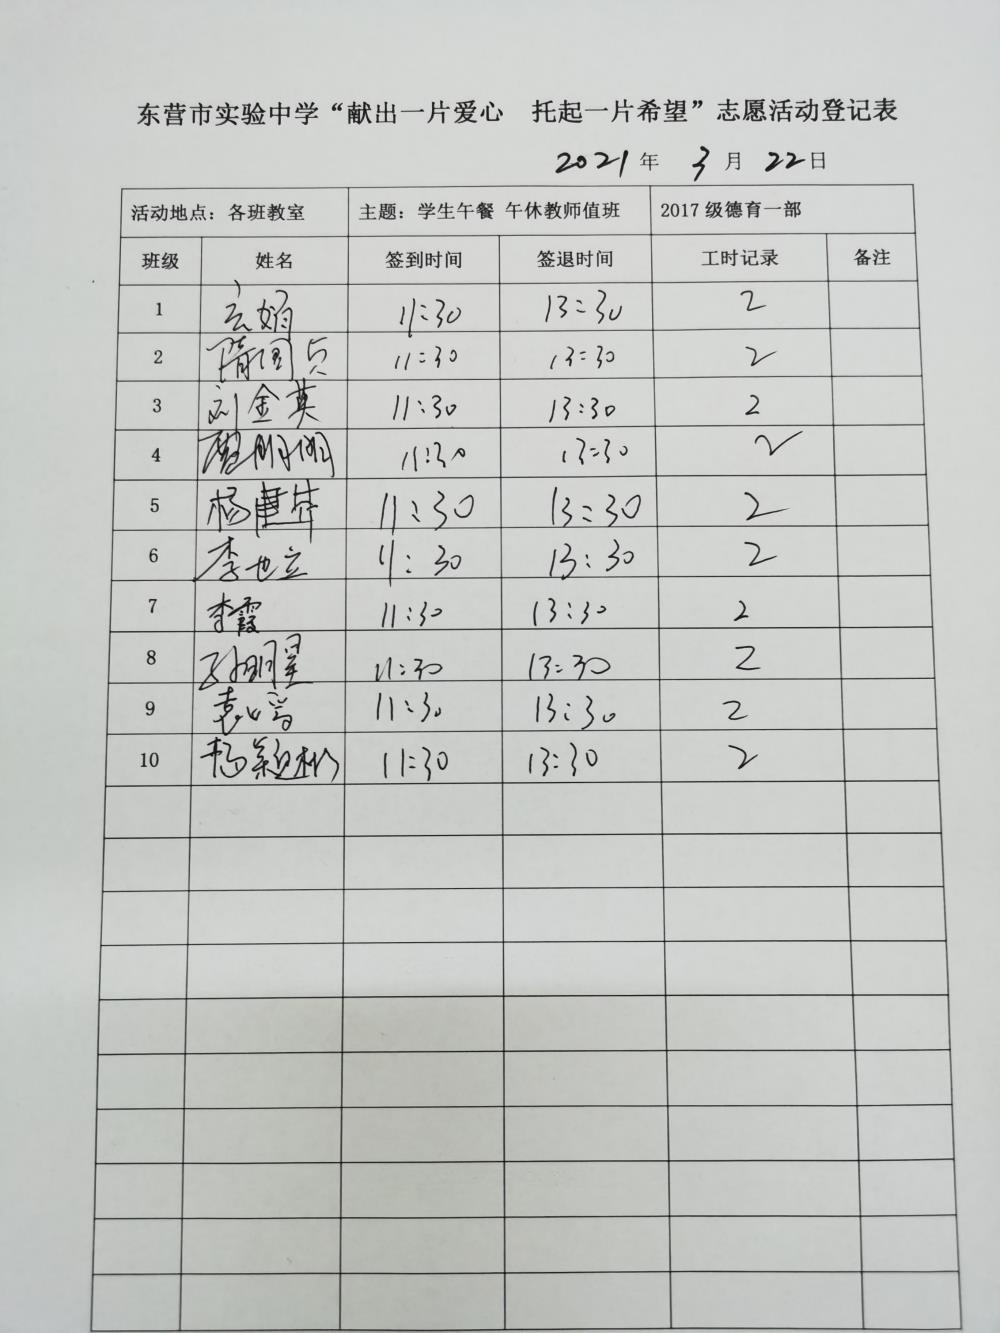 东营市实验中学“献出一片爱心 托起一片希望”志愿活动登记表
2021 年 3 月 22 日
活动地点：各班教室 主题：学生午餐 午休教师值班 2017 级德育一部
班级 姓名 签到时间 签退时间 工时记录 备注
1 11:30 13:30 2
2 11:30 13:30 2
3 刘金英 11:30 13:30 2
4 11:30 13:30 2
5 杨 11:30 13:30 2
6 李世立 11:30 13:30 2
7 李霞 11:30 13:30 2
8 孙明星 11:30 13:30 2
9 袁 11:30 13:30 2
10 杨 11:30 13:30 2